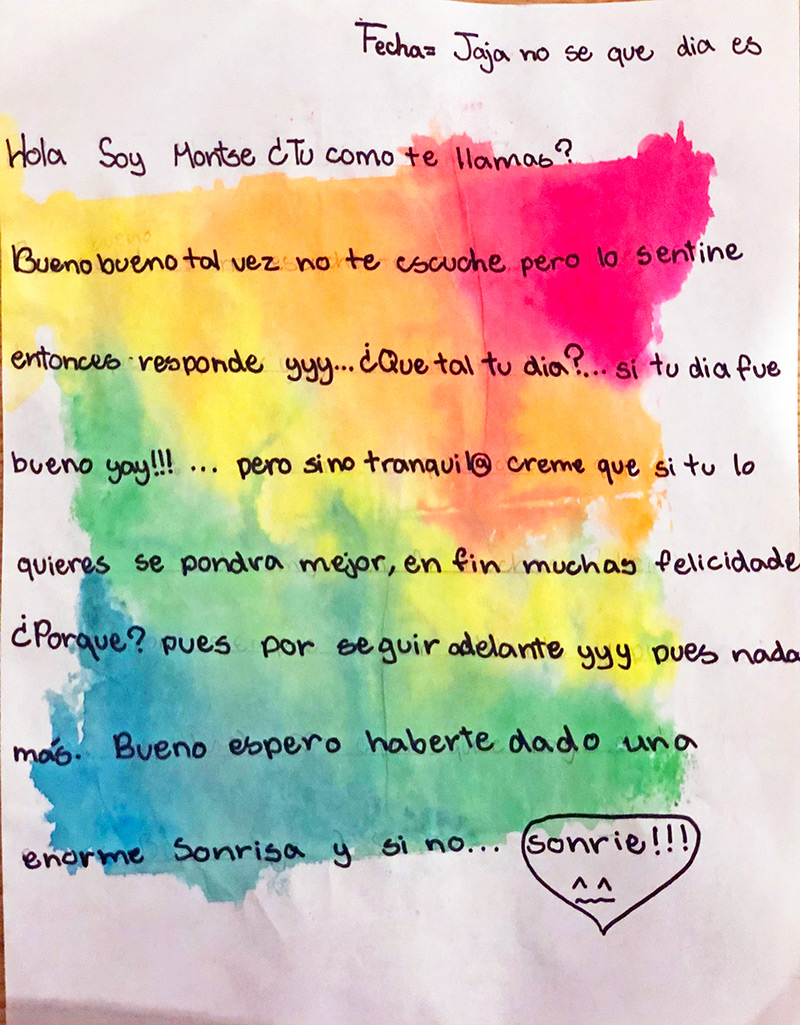 Fecha= Jaja no se que dia es
Hola Soy Montse ¿Tu como te llamas?
Bueno bueno tal vez no te escuche pero lo sentine
entonces responde yyy... ¿Que tal tu dia?... si tu dia fue
bueno yay!!! ... pero si no tranquil@ creme que si tu lo
quieres se pondra mejor, en fin muchas felicidade
¿Porque? pues por seguir adelante yyy pues nada
más. Bueno espero haberte dado una
enorme Sonrisa y si no... sonrie!!!